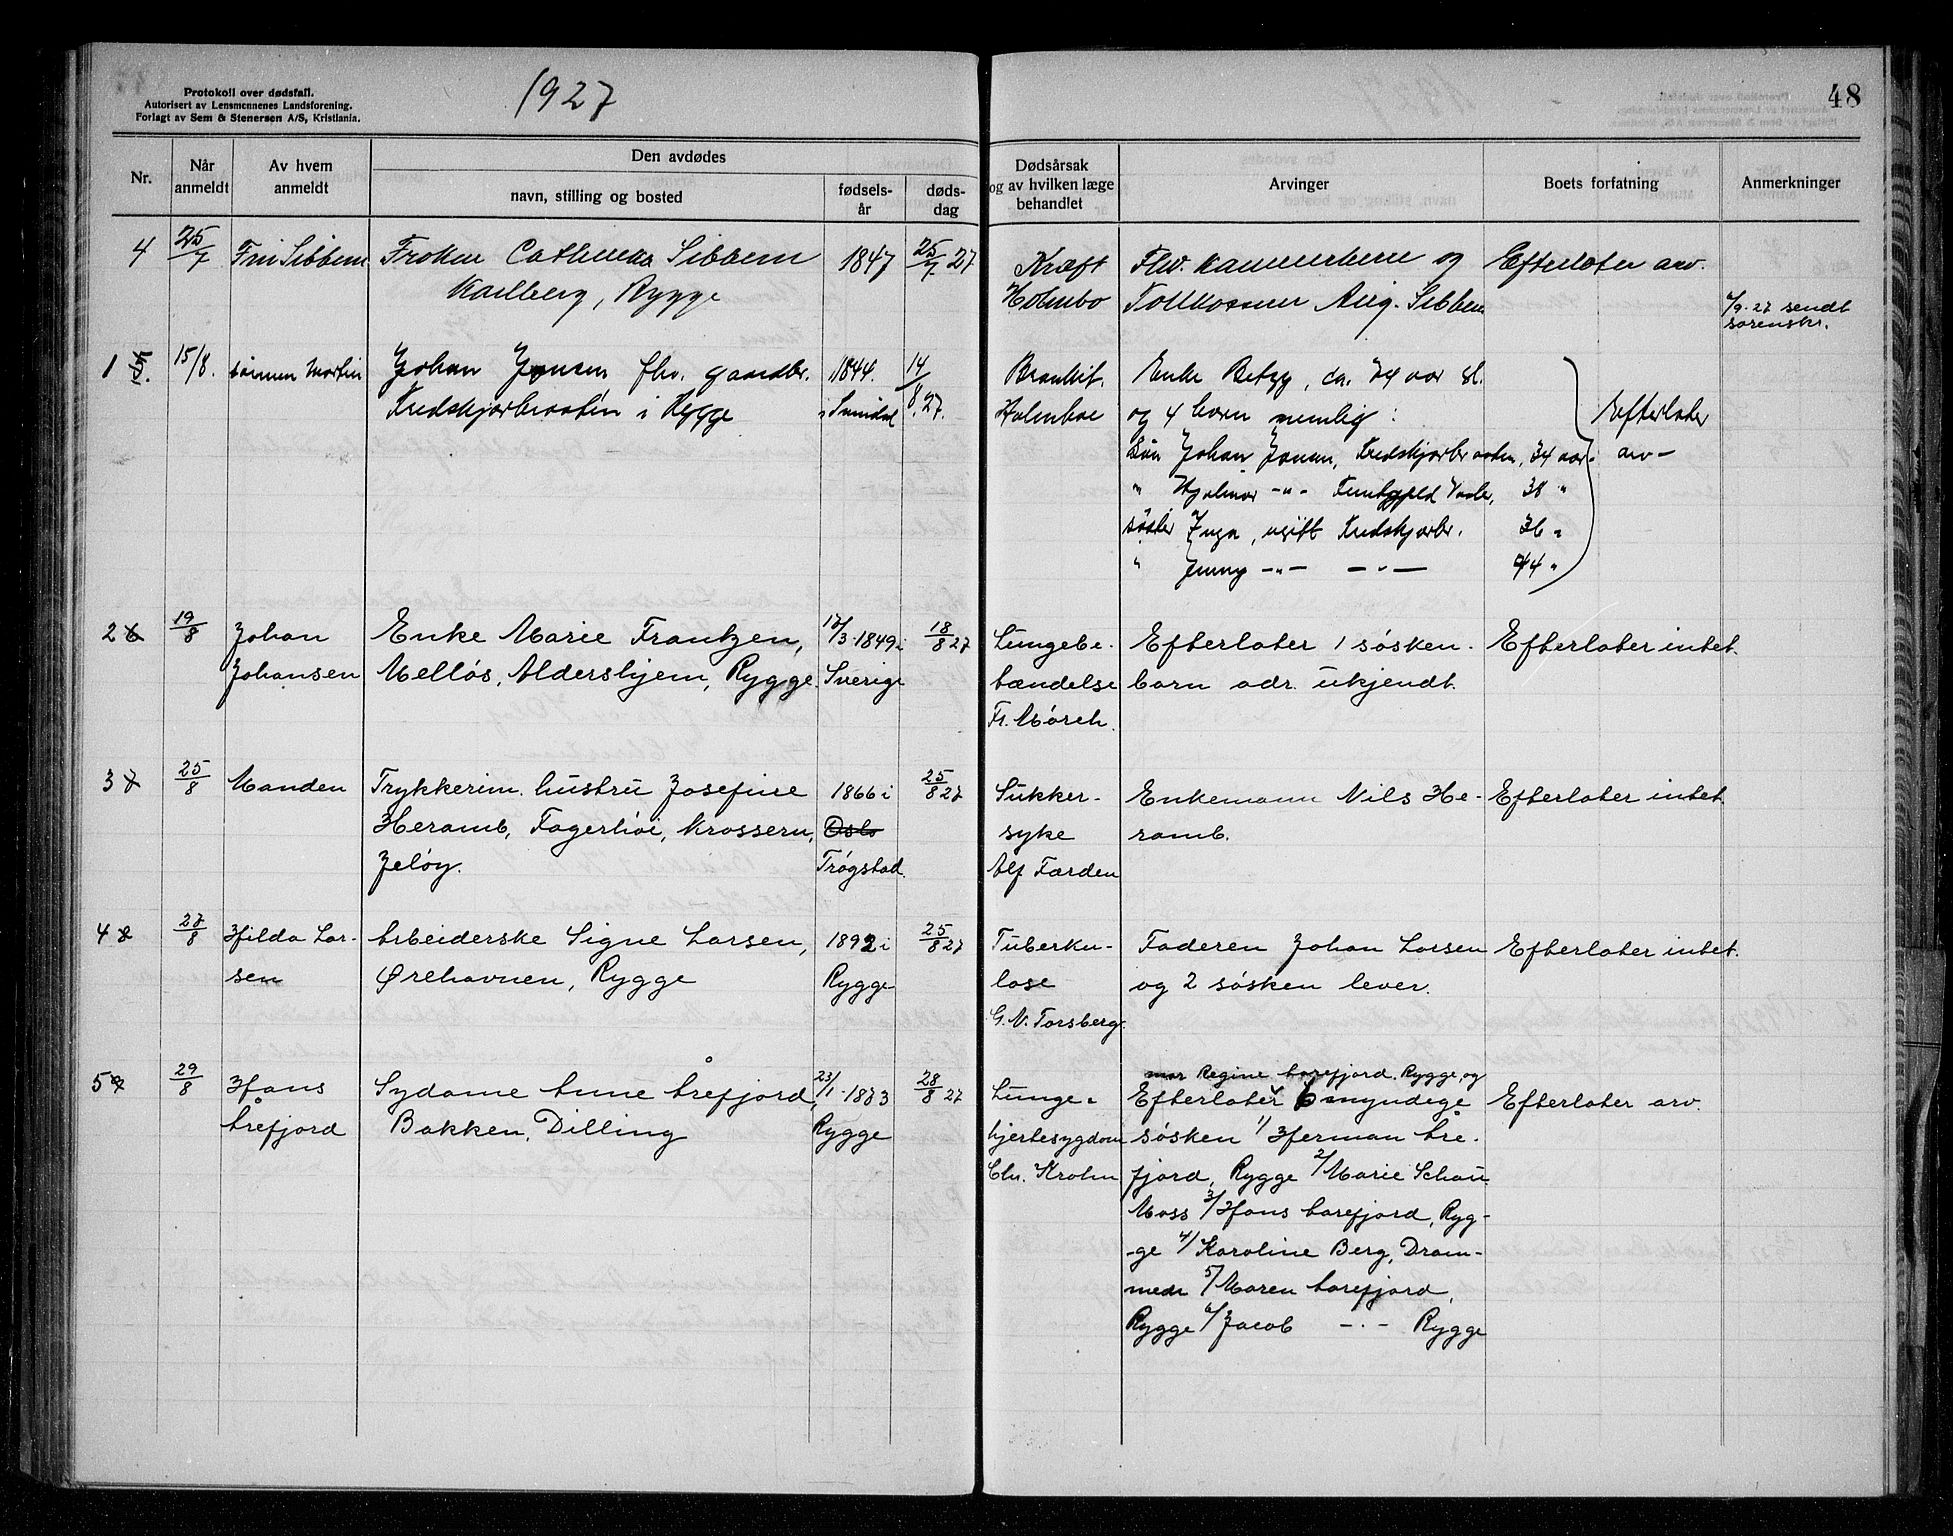 Protokoll over dødsfall.
Autorisert av Lensmennenes Landsforening.
Forlagt av Sem & Stenersen A/S, Kristiania.
1927
48
Nr.
Når anmeldt
Av hvem anmeldt
Den avdødes
navn, stilling og bosted
fødsels-år
døds-dag
Dødsårsak og av hvilken læge behandlet
Arvinger
Boets forfatning
Anmerkninger
4 25/7 Sibbern Frøken Cathinka Sibbern 1847 25/7 27 Kræft Fhv. kammerherre og Efterlater arv.
Karlberg, Rygge Holmbo Tollkasserer Aug. Sibbern
/9-27 sendt
sorenskr.
1 5. 15/8. Martin Johan Jensen fhv. gaardbr. 1844. 14/8.27. Bronkit. Enke Betzy, ca. 74 aar gl.
i Rygge Holmboe og 4 born nemlig:
Søn Johan Jensen, 34 aar Efterlater arv-
" Hjalmar -"- 38 "
Inga, ugift 36 "
" Jenny -"- -"- 44 "
2 6 19/8 Johan Enke Marie Frantzen, 17/3-1849 i 18/8 27 Lungebe- Efterlater 1 søsken- Efterlater intet.
Johansen Melløs, Aldershjem, Rygge. Sverige tændelse barn adr. ukjendt.
Fr. Mørch.
3 7 25/8 Manden Trykkerim. hustru Josefine 1866 i 25/8 27 Sukker- Enkemann Nils He- Efterlater intet
Heramb, Fagerlioi, Krossern, Oslo syke ramb.
Jeløy. Trøgstad. Alf Farden
4 8 27/8 Hilda Lar- Arbeiderske Signe Larsen, 1892 i 25/8 27 Tuberku- Faderen Johan Larsen Efterlater intet.
sen Ørehavnen, Rygge Rygge lose og 2 søsken lever.
G. N. Torsberg.
mor Regine Aarefjord. Rygge, og
5 9 29/8 Hans Sydame Anne Årefjord, 23/1-1873 28/8 27 Lunge- Efterlater 6 myndige Efterlater arv.
Årefjord Bakken, Dilling Rygge hjertesygdom søsken 1/ Herman Åre-
Chr. Krohn fjord, Rygge 2/ Marie Schau
Moss 3/ Hans Aarefjord, Ryg-
-ge 4/ Karoline Berg, Dram-
men 5/ Maren Aarefjord,
Rygge 6/ Jacob -"- Rygge